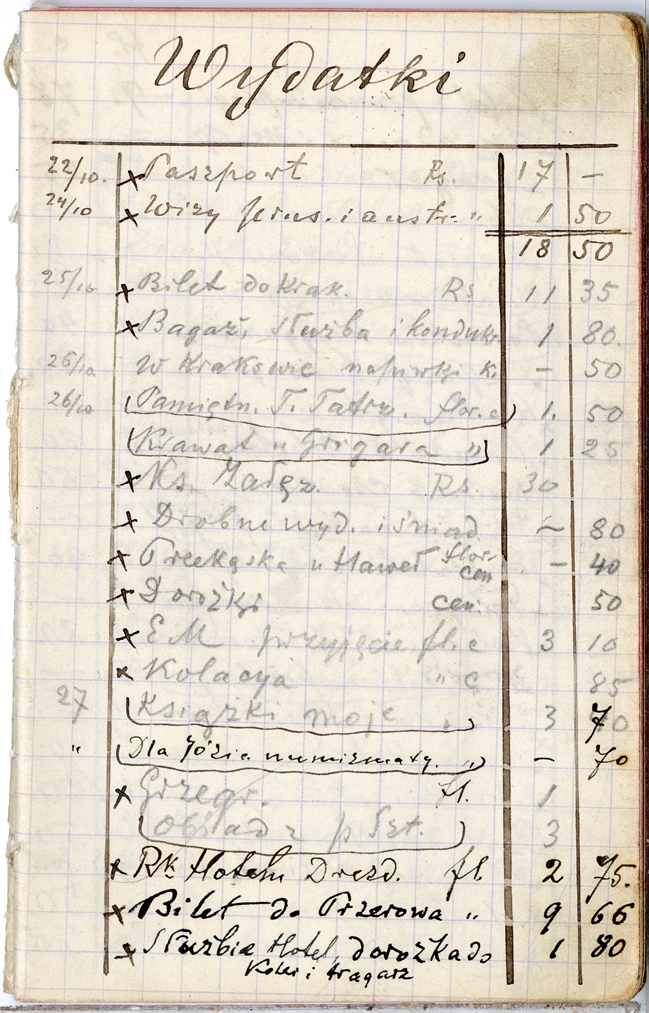 Wydatki
22/10. × Paszport Rs. 17 –
24/10 × Wizy prus. i austr. " 1 50
18 50
25/10 × Bilet do Krak. Rs 11 35
× Bagaż, służba i konduk. 1 80.
26/10 W Krakowie napiwki k. – 50
26/10 Pamiętn. T. Tatrz. flor. c 1. 50
Krawat u Grigara " 1 25
× Ks. Załęz. Rs. 30
× Drobne wyd. i śniad. ~ 80
× Przekąska u Haweł flor. cen – 40
× Dorożki cen. 50
× E M przyjęcie fl. c 3 10
× Kolacya " c 85
27 Książki moje " 3 70
" Dla Józia numizmaty. " – 70
× Grzegr. fl. 1
Obiad z p. Szt. 3
× Rk Hotelu Drezd. fl 2 75.
× Bilet do Przerowa " 9 66
× Służbie Hotel, dorożka do 1 80
Kolei i tragarz